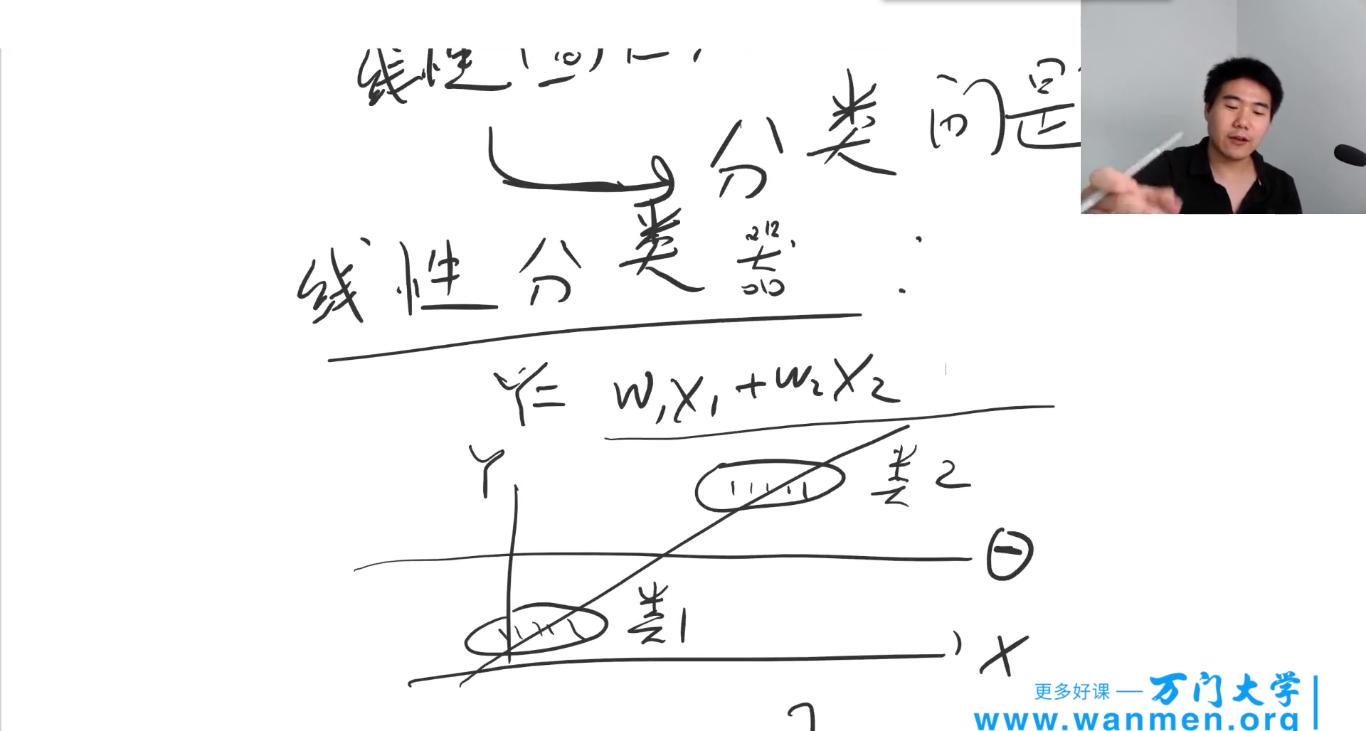 线性
分类问是
线性分类器：
Y= W₁X₁+W₂X₂
Y
类2
θ
类1
X
更多好课 — 万门大学
www.wanmen.org